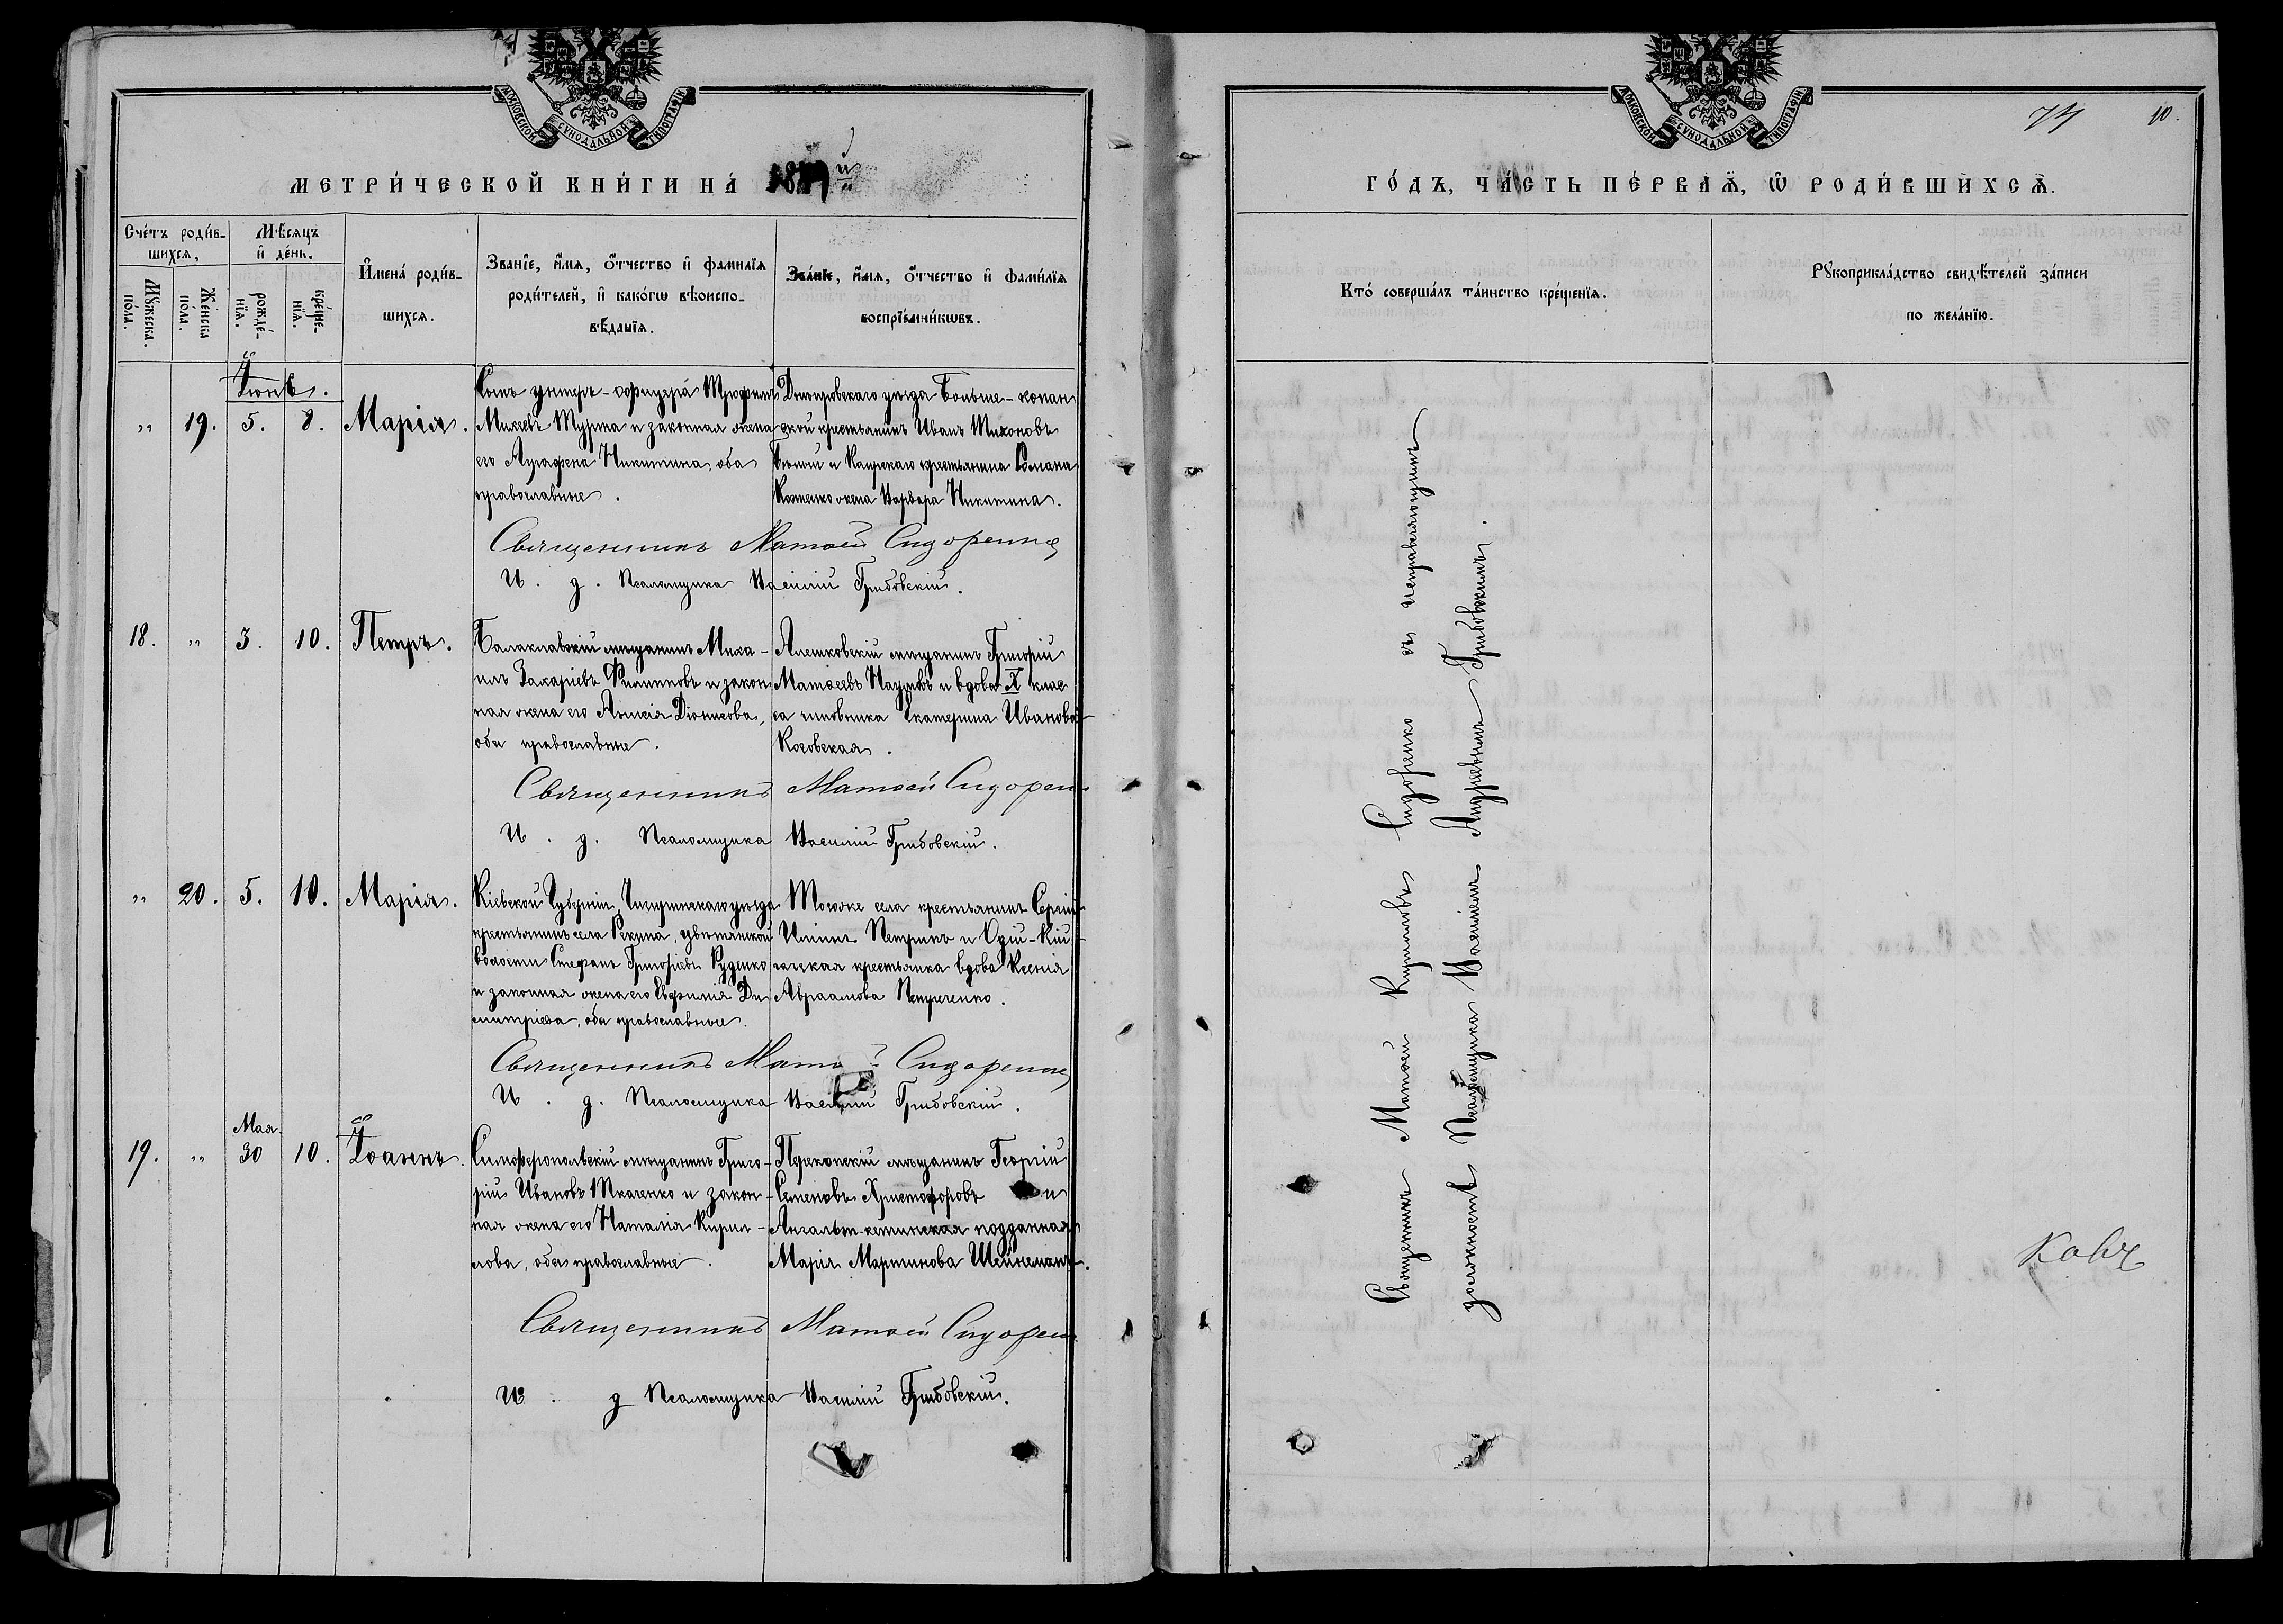 МОСКОВСКОЙ СУНОДАЛЬНОЙ ТИПОГРАФІИ
МЕТРИ́ЧЕСКОЙ КНИ́ГИ НА́ й
Сче́тъ роди́в-
шихся,
Мѣсяцъ
и҆ де́нь.
Мꙋжеска.
по́ла.
Же́нска
по́ла.
рожде́-
нїя.
кре́ще-
нїя.
И҆мена́ роди́в-
шихся.
Зва́нїе, и҆́мя, ѻ҆́тчество и҆ фами́лїя
роди́телей, и҆ како́гѡ вѣроиспо-
вѣ́данїя.
Зва́нїе, и҆́мя, ѻ҆́тчество и҆ фами́лїя
воспрїе́мникѡвъ.
Іюнь.
„ 19. 5. 8. Марія.
унтеръ-офицера
Михеевъ и законная жена
его Агрфена Никитина, оба
православные.
Днѣпровскаго уѣзда Больше-копан
ской крестьянинъ Иванъ Тихоновъ
и Каирскаго крестьянина Романа
Костенко жена Варвара Никитина.
Священникъ Матѳей Сидоренко
И. д. Псаломщика Василій Грибовскій.
18. „ 3. 10. Петръ.
Балаклавскій мѣщанинъ Миха-
илъ Захаріевъ Филиповъ и закон
ная жена его Анисія Діонисова,
оба православные.
Алешковскій мѣщанинъ Григорій
Матѳеевъ Наумовъ и вдова X клас
са чиновника Екатерина Иванова
Косовская.
Священникъ Матѳей Сидорен
И. д. Псаломщика Василій Грибовскій.
„ 20. 5. 10. Марія.
Кіевской Губерніи, Чигиринскаго уѣзда
крестьянинъ села
волости Стефанъ Григоріевъ Руденко
и законная жена его Евфимія Ди
митріева, оба православные.
села крестьянинъ Сергій
Ильинъ Петринъ и
крестьянка вдова Ксенія
Авраамова
Священникъ Матѳ Сидоренко
И. д. Псаломщика Василій Грибовскій.
Мая.
19. „ 30 10. Іоаннъ.
Симферопольскій мѣщанинъ Григо-
рій Ивановъ Ткаченко и закон-
ная жена его Наталія Кирил-
лова, оба православные.
Перекопскій мѣщанинъ Георгій
Семеновъ Христофоровъ и
Ангальт-кетинская подданная
Марія Мартинова Шейнеманъ.
Священникъ Матѳей Сидорен
И. д Псаломщика Василій Грибовскій.
МОСКОВСКОЙ СУНОДАЛЬНОЙ ТИПОГРАФІИ
10.
ГО́ДЪ, ЧА́СТЬ ПЕ́РВАЯ, Ѡ҆ РОДИ́ВШИХСЯ.
Кто́ соверша́лъ та́инство креще́нїя.
Рꙋкоприкла́дство свидѣ́телей за́писи
по жела́нїю.
Священникъ Матѳей Кирилловъ Сидоренко съ исправляющимъ
должность Псаломщика Василіемъ Андреевымъ Грибовскимъ.